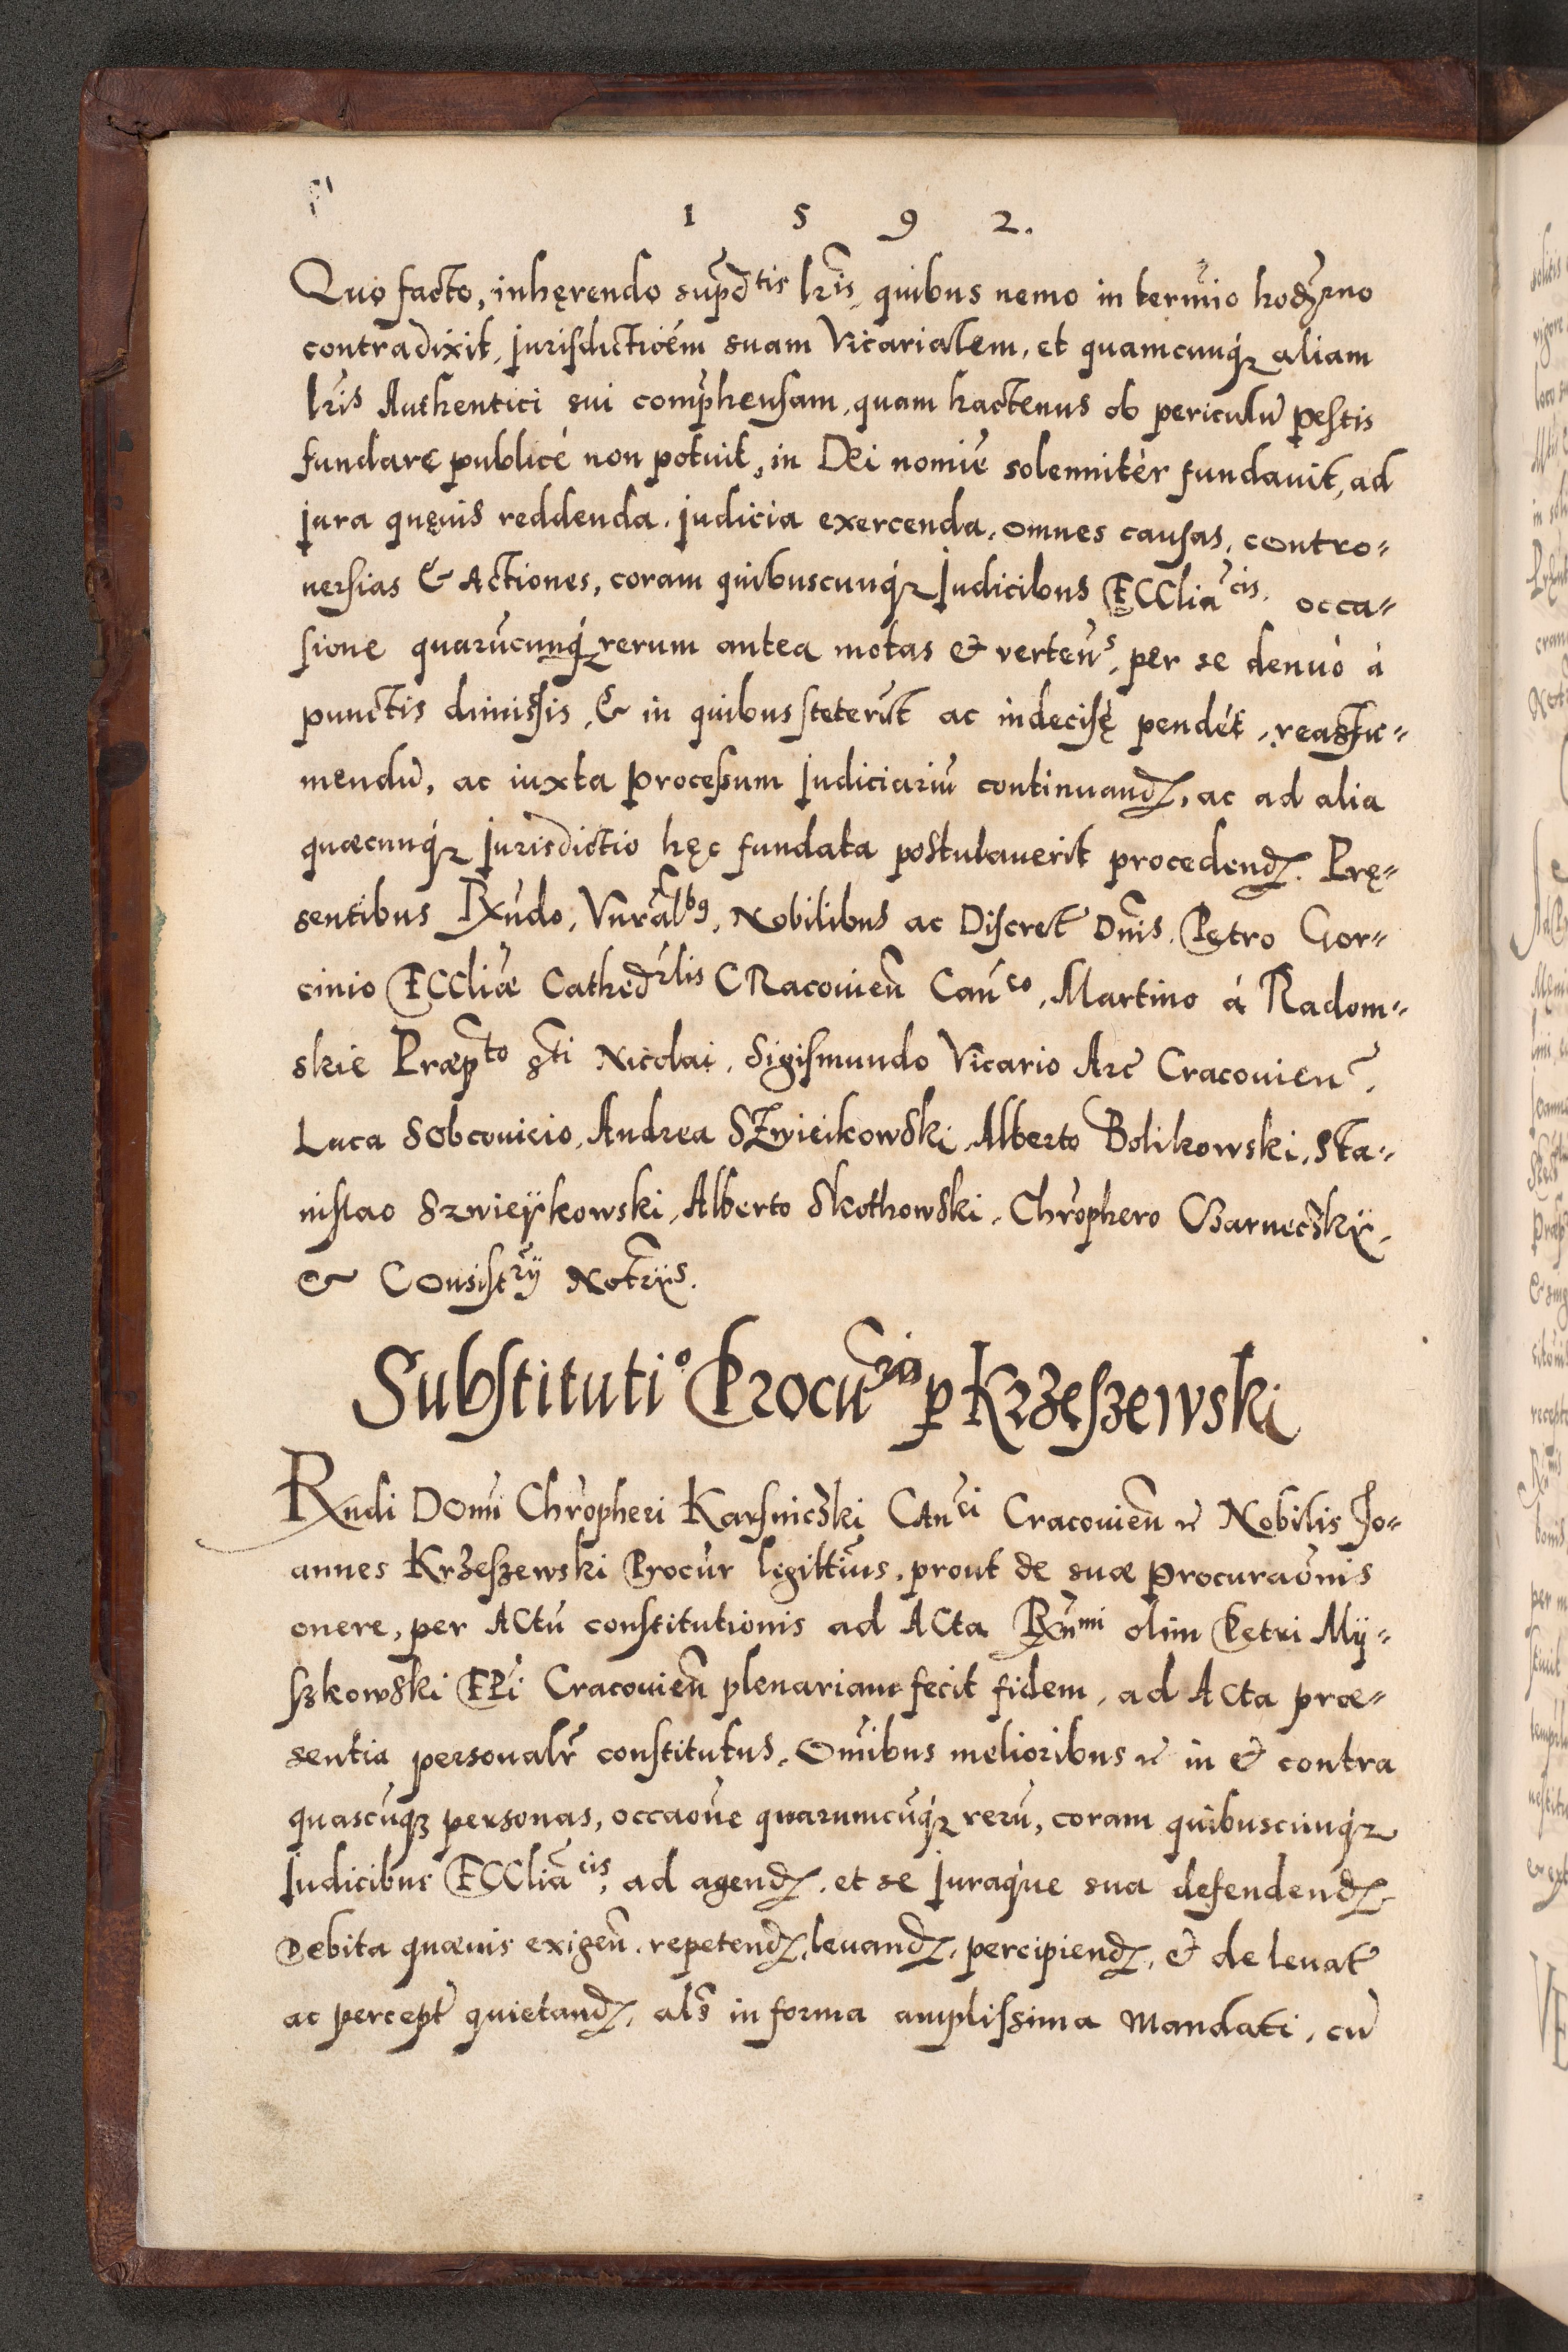 1 5 9 2.
Quo facto, inhęrendo supdtis lris, quibus nemo in termīo hodierno
contradixit, jurisdictiōēm suam Vicarialem, et quamcunq́ꝫ aliam
lris Authentici sui comprhensam, quam hactenus ob periculū pestis
fundare publicè non potuit, in Dei nomīe solennitèr fundavit, ad
jura quęuis reddenda, judicia exercenda, omnes causas, contro=
uersias & Actiones, coram quibuscunq́ꝫ Judicibus ECClīācis, occa=
sione quarūcunq́ꝫ rerum antea motas & verten̄s, per se denuò à
punctis dimissis, & in quibus steterūt ac indecisę pendēt, reassu=
mendū, ac iuxta processum judiciariū continuandꝫ, ac ad alia
quæcunq́ꝫ Jurisdictio hęc fundata postulauerit procedendꝫ. Prę=
sentibus Rx̄ndo, Vnrālbꝯ, Nobilibus ac Discret̄ Dnīs, Petro Gor=
cinio ECClīæ Cathedrlis CRacouien̄ Can̄co, Martino à Radom=
skie Præpto Sti Nicolai, Sigismundo Vicario Arc̄ Cracouien̄,
Luca Sobcouicio, Andrea SZwieikowski, Alberto Bolikowski, Sta=
nislao Szwieÿkowski, Alberto Skothowski, Chrophero Czarneczkÿ,
& Consistrij Notrijs.
Substitutio Procūris p Krzeszewski
Rx̄ndi Domī Chropheri Karsniczki Can̄ci Cracouien̄ ꝛc Nobilis Jo=
annes Krzeszewski Procūr legittīus, prout de suæ procuraōnis
onere, per ACtū constitutionis ad ACta Rx̄nmi olim Petri Mÿ=
szkowski EPī Cracouien̄ plenariam fecit fidem, ad ACta præ=
sentia personalr̄ constitutus, Omībus melioribus ꝛc in & contra
quascūqꝫ personas, occaōne quarumcūq́ꝫ rerū, coram quibuscunq́ꝫ
Judicibus ECClīācis, ad agendꝫ, et se juraq́ue sua defendendꝫ,
Debita quæuis exigen̄, repetendꝫ, leuandꝫ, percipiendꝫ, & de leuat̄
ac percept̄ quietandꝫ, als̄ in forma amplissima Mandati, cū